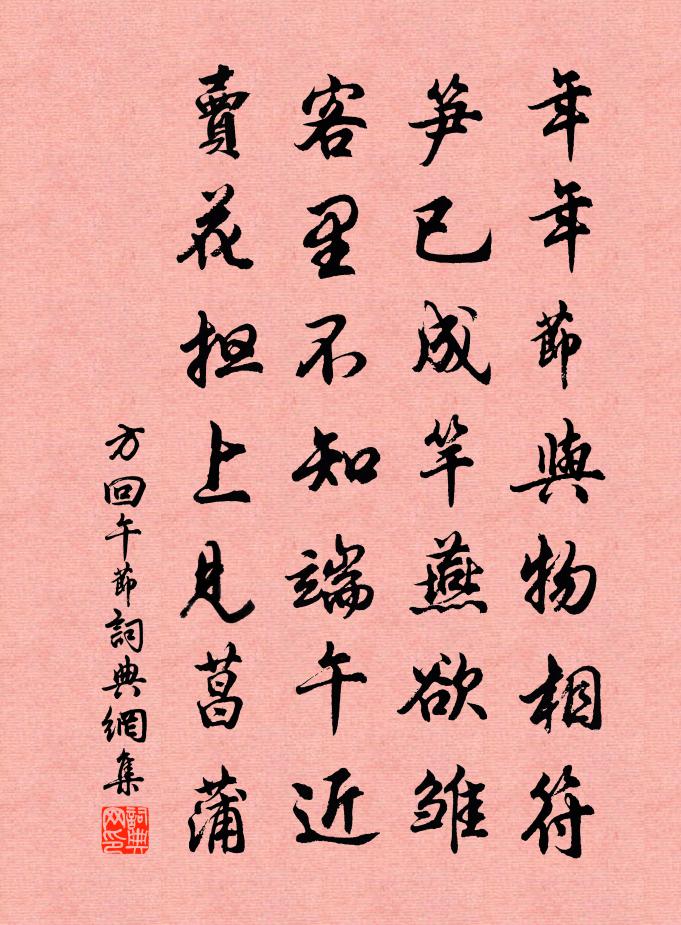 年年節與物相符
笋已成竿燕欲雏
客里不知端午近
賣花担上見菖蒲
方回午節詞典網集
詞典网印